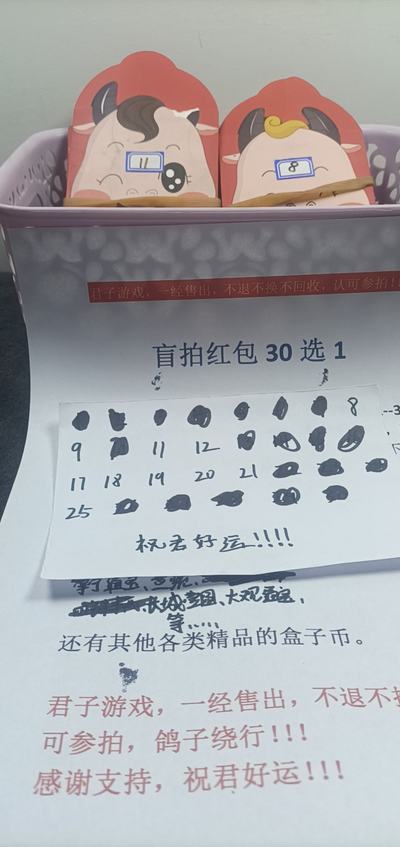 11
8
君子游戏，一经售出，不退不换不回收，认可参拍！
盲拍红包 30 选 1
8
9 11 12
17 18 19 20 21
25
祝君好运!!!!
大观园
等……
还有其他各类精品的盒子币。
君子游戏，一经售出，不退不
可参拍，鸽子绕行!!!
感谢支持，祝君好运!!!